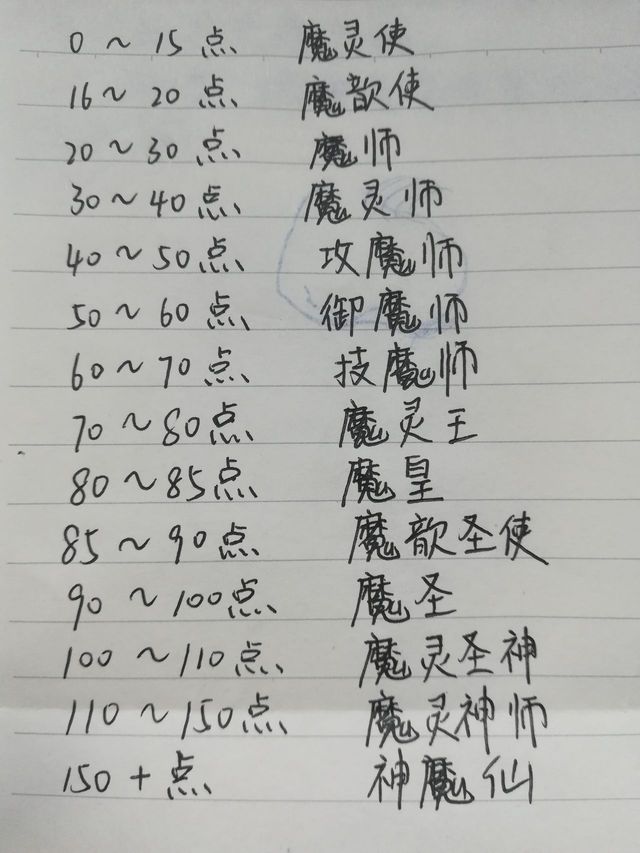 0～15点 魔灵使
16～20点 魔歆使
20～30点 魔师
30～40点 魔灵师
40～50点 攻魔师
50～60点 御魔师
60～70点 技魔师
70～80点 魔灵王
80～85点 魔皇
85～90点 魔歆圣使
90～100点 魔圣
100～110点 魔灵圣神
110～150点 魔灵神师
150+点 神魔仙